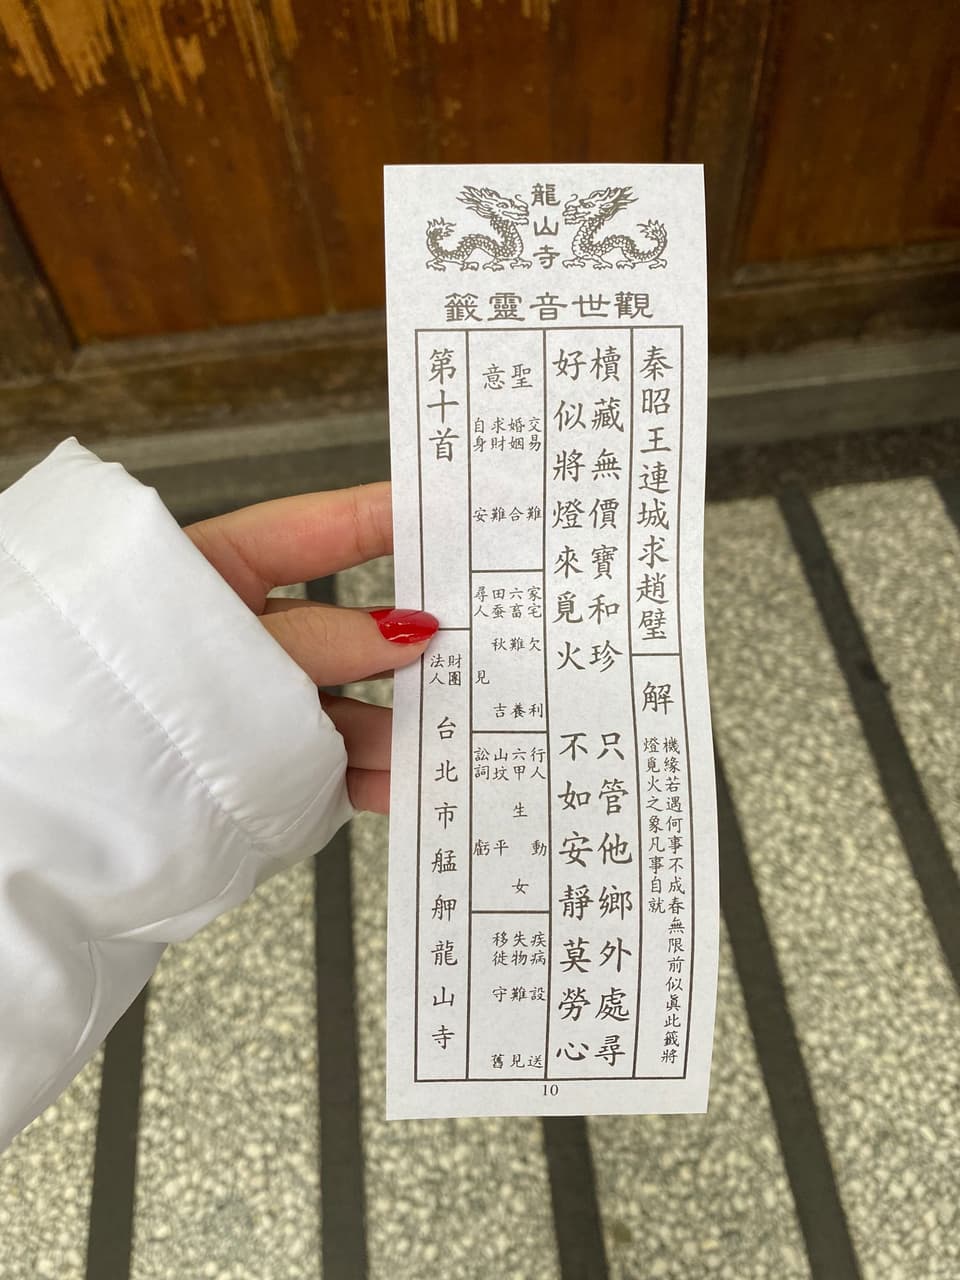 龍山寺
觀世音靈籤
秦昭王連城求趙璧
解
機緣若遇何事不成春無限前似眞此籤將
燈覓火之象凡事自就
櫝藏無價寶和珍 只管他鄉外處尋
好似將燈來覓火 不如安靜莫勞心
聖意
交易 難
婚姻 合
求財 難
自身 安
家宅 欠利
六畜 難養
田蚕 秋吉
尋人 見
行人 動
六甲 生女
山坟 平
訟詞 虧
疾病 設送
失物 難見
移徙 守舊
第十首
財團
法人
台北市艋舺龍山寺
10